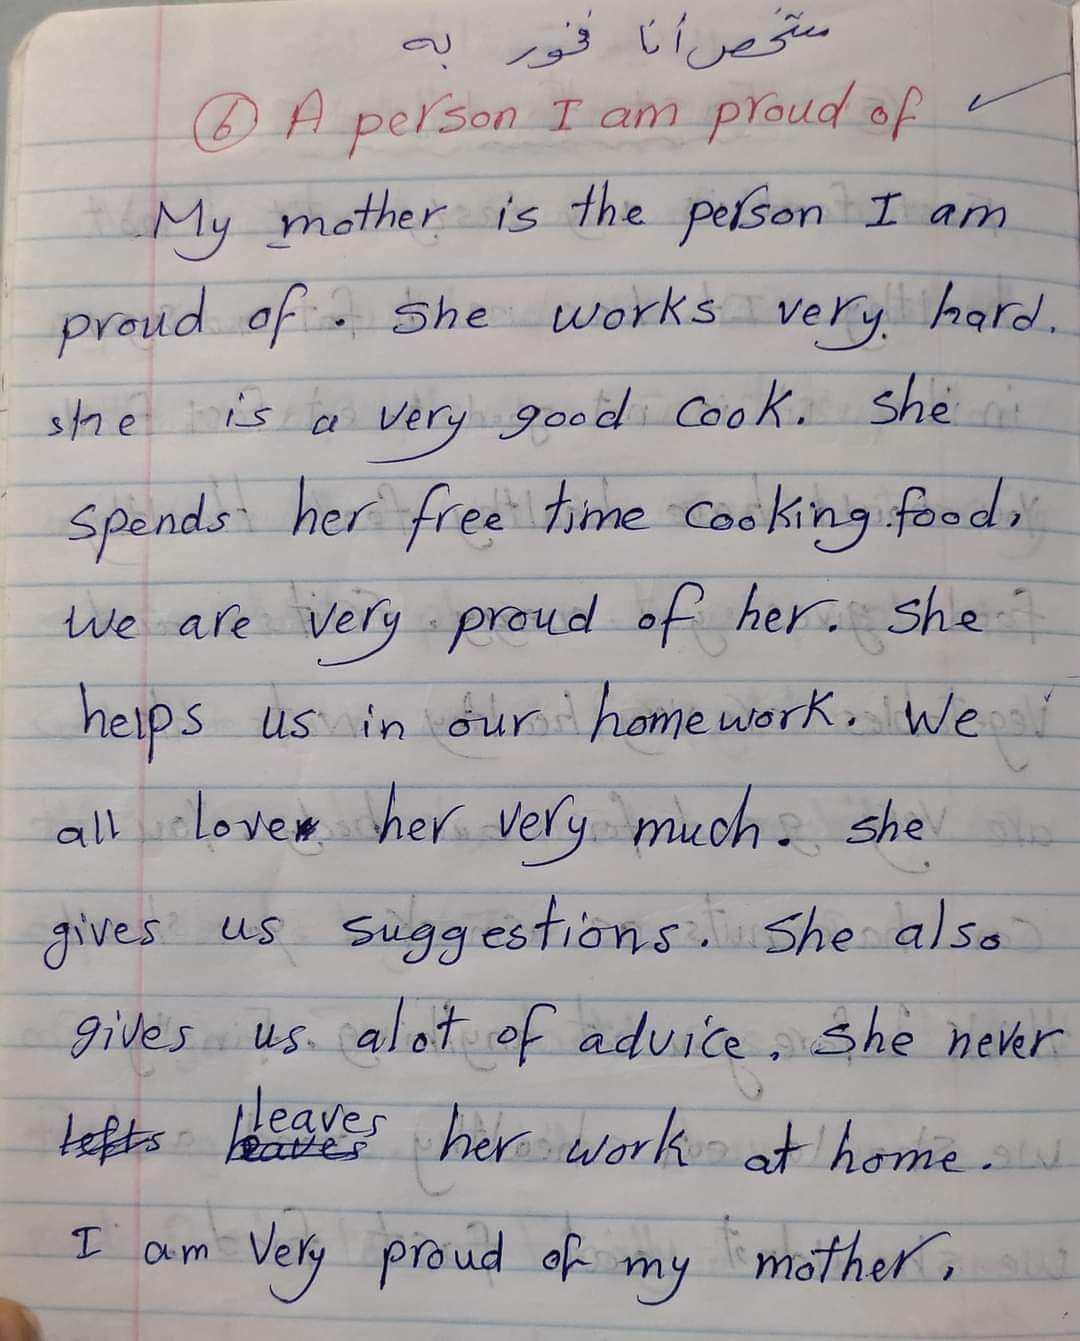 شخص أنا فخور به
6 A person I am proud of
My mother is the person I am
proud of. She works very hard.
she is a very good cook. She
spends her free time cooking food.
We are very proud of her. She
helps us in our homework. We
all love her very much. she
gives us suggestions. She also
gives us alot of advice. She never
lefts leaves leaves her work at home.
I am very proud of my mother.